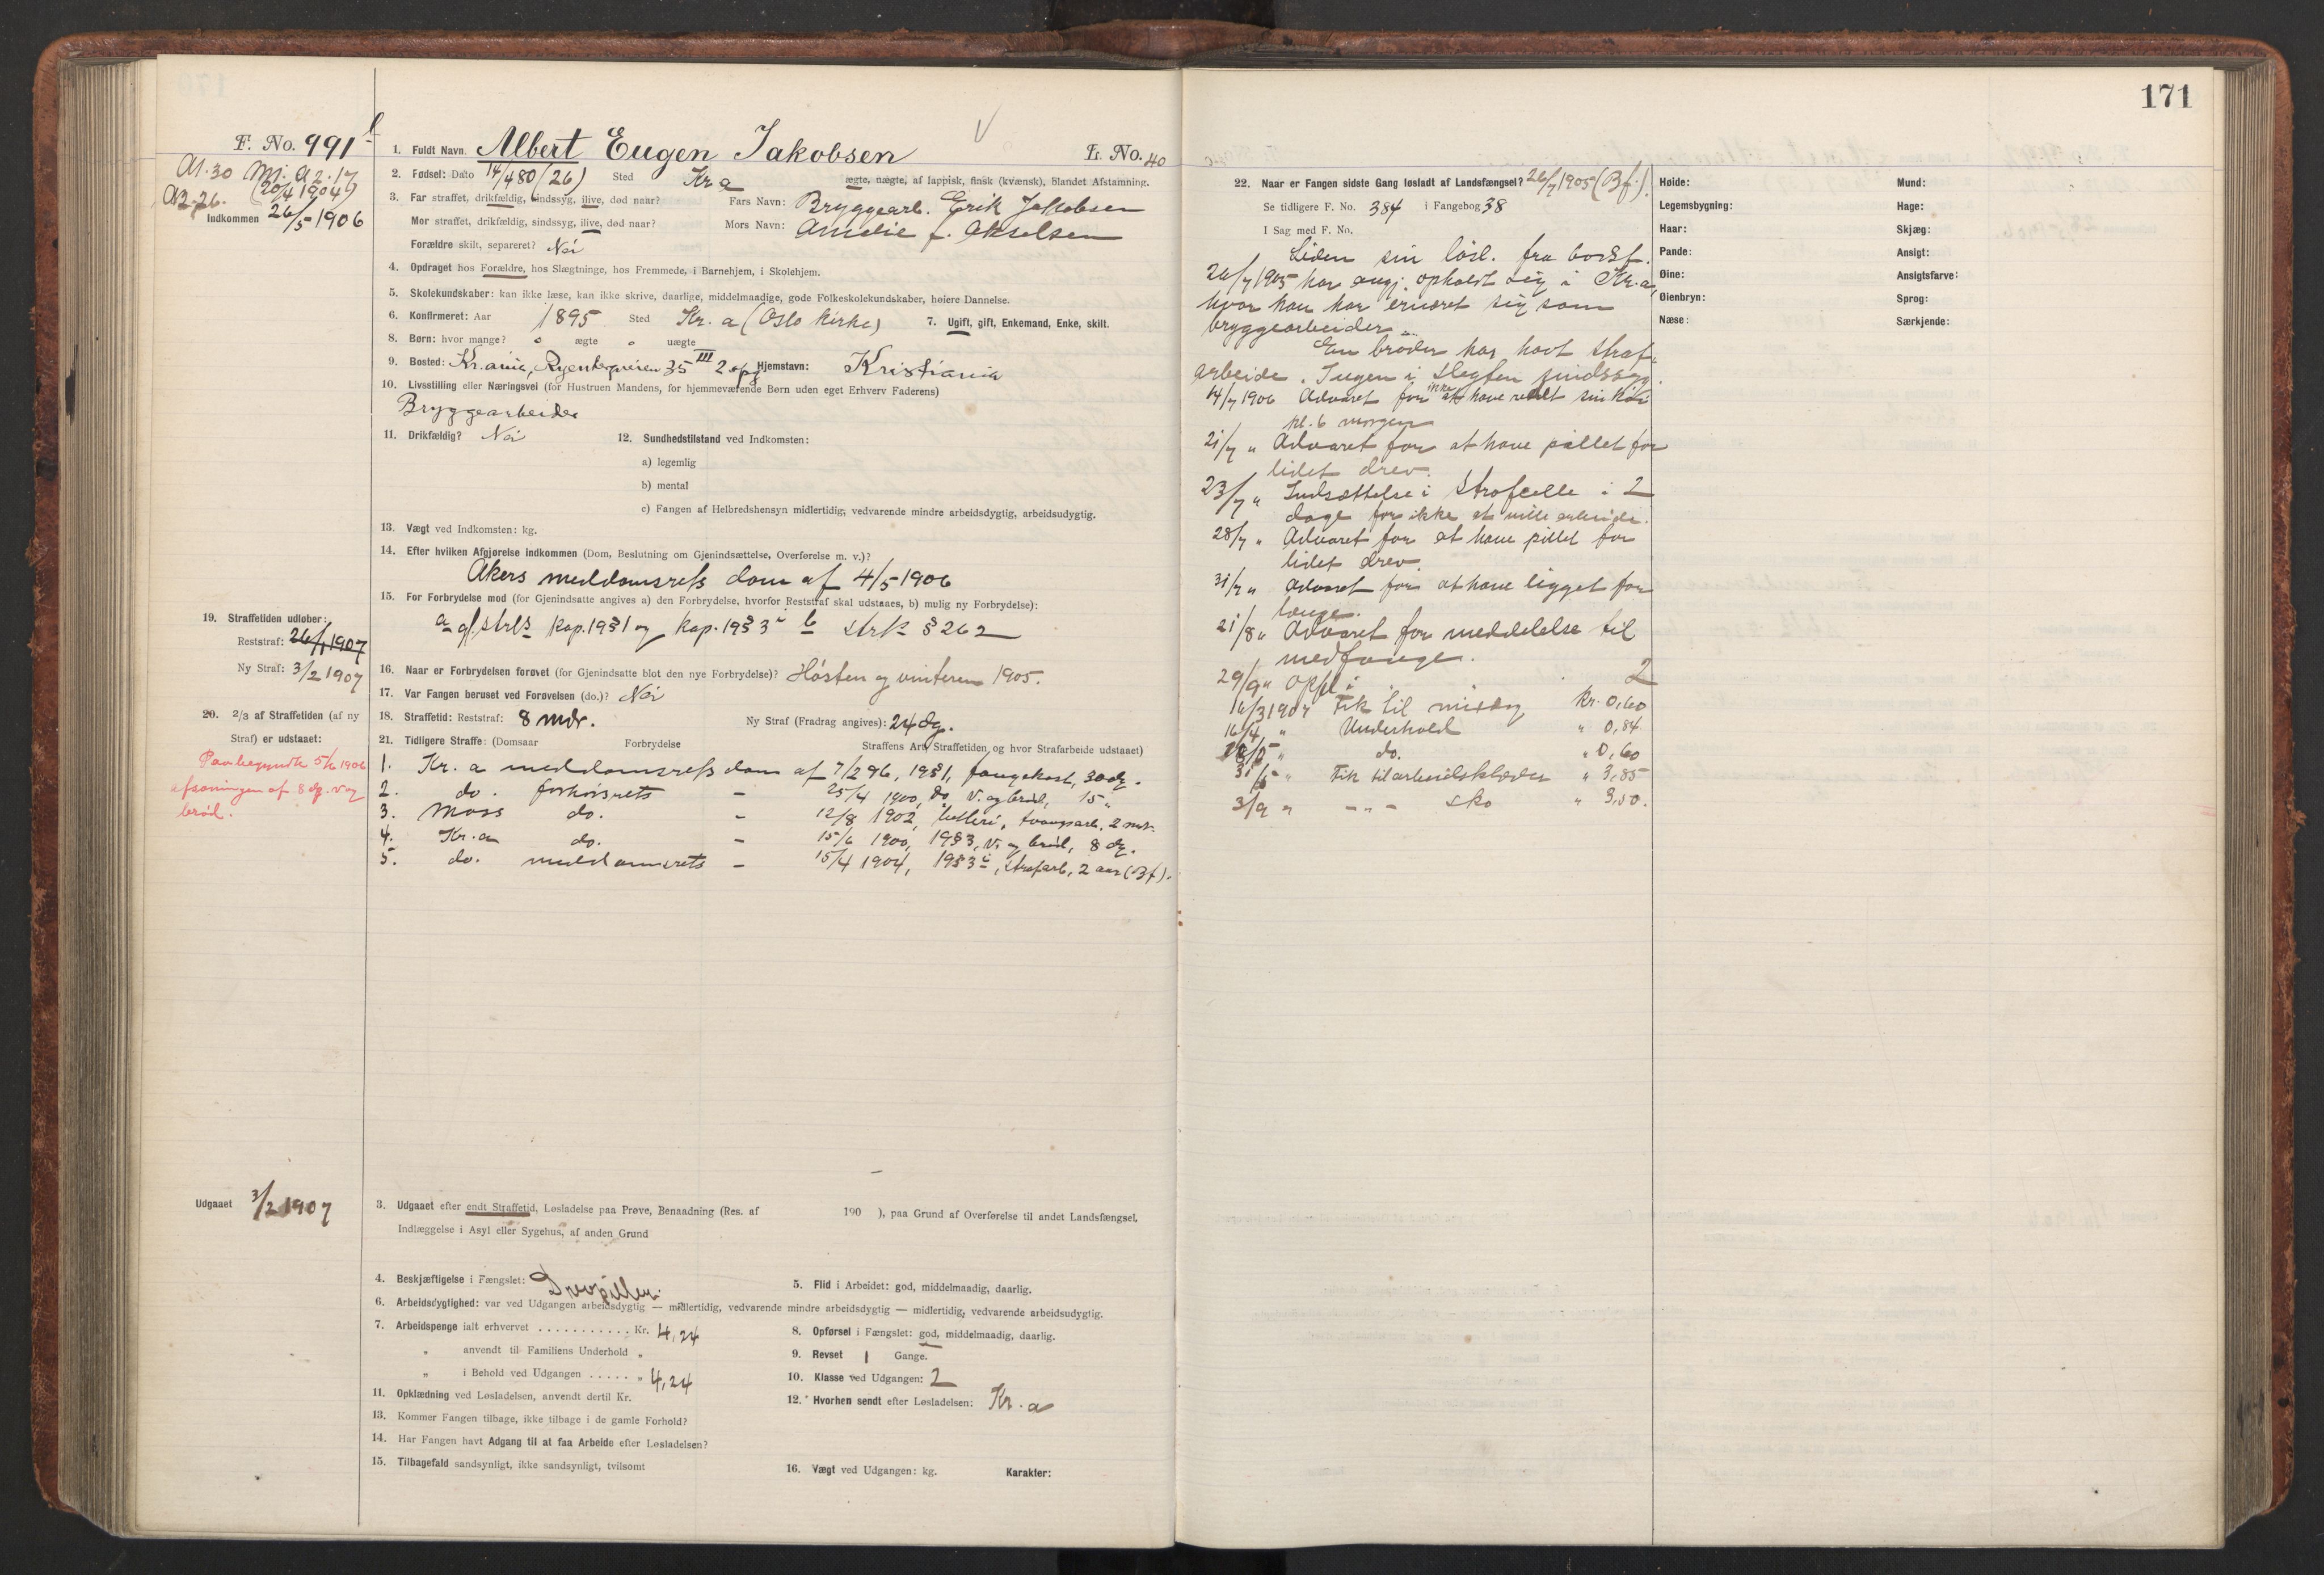 F. No. 991 b
A1.30 Mj. A2.17
A2.26. (20/4 1904)
Indkommen 26/5 1906
1. Fuldt Navn. Albert Eugen Jakobsen L. No. 40
2. Fødsel: Dato 14/4 80 (26) Sted Kr a ægte, uægte, af lappisk, finsk (kvænsk), blandet Afstamning.
3. Far straffet, drikfældig, sindssyg, ilive, død naar? Fars Navn: Bryggearb. Erik Jakobsen
Mor straffet, drikfældig, sindssyg, ilive, død naar? Mors Navn: Amelie f. Akselsen
Forældre skilt, separeret? Nei
4. Opdraget hos Forældre, hos Slægtninge, hos Fremmede, i Barnehjem, i Skolehjem.
5. Skolekundskaber: kan ikke læse, kan ikke skrive, daarlige, middelmaadige, gode Folkeskolekundskaber, høiere Dannelse.
6. Konfirmeret: Aar 1895 Sted Kr. a (Oslo kirke) 7. Ugift, gift, Enkemand, Enke, skilt.
8. Børn: hvor mange? o ægte o uægte
9. Bosted: Kr.ania, 35 III 2 opg Hjemstavn: Kristiania
10. Livsstilling eller Næringsvei (for Hustruen Mandens, for hjemmeværende Børn uden eget Erhverv Faderens)
Bryggearbeider
11. Drikfældig? Nei 12. Sundhedstilstand ved Indkomsten:
a) legemlig
b) mental
c) Fangen af Helbredshensyn midlertidig, vedvarende mindre arbeidsdygtig, arbeidsudygtig.
13. Vægt ved Indkomsten: kg.
14. Efter hvilken Afgjørelse indkommen (Dom, Beslutning om Gjenindsættelse, Overførelse m. v.)?
Akers meddomsrets dom af 4/5 1906
15. For Forbrydelse mod (for Gjenindsatte angives a) den Forbrydelse, hvorfor Reststraf skal udstaaes, b) mulig ny Forbrydelse):
a gl. strls kap. 19 § 1 og kap. 19 § 3 b strl § 262
19. Straffetiden udløber:
Reststraf: 26/1 1907
Ny Straf: 3/2 1907
16. Naar er Forbrydelsen forøvet (for Gjenindsatte blot den nye Forbrydelse)? Høsten og vinteren 1905.
17. Var Fangen beruset ved Forøvelsen (do.)? Nei
18. Straffetid: Reststraf: 8 mdr. Ny Straf (Fradrag angives): 24 dg.
20. 2/3 af Straffetiden (af ny
Straf) er udstaaet:
Paabegyndte 5/6 1906
afsoningen af 8 dg. v og
brød.
21. Tidligere Straffe: (Domsaar Forbrydelse Straffens Art, Straffetiden og hvor Strafarbeide udstaaet)
1. Kr. a meddomsrets dom af 7/2 96, 19 § 1, fangekost, 30 dg.
2. do. forhørsrets – 25/4 1900, do. v. og brød, 15 "
3. Moss do. – 12/8 1902, betleri, tvangsarb. 2 mdr.
4. Kr. a do. – 15/6 1900, 19 § 3, v. og brød, 8 dg.
5. do. meddomsrets – 15/4 1904, 19 § 3 c, strafarb. 2 aar (Bf).
Udgaaet 3/2 1907
3. Udgaaet efter endt Straffetid, Løsladelse paa Prøve, Benaadning (Res. af 190 ), paa Grund af Overførelse til andet Landsfængsel,
Indlæggelse i Asyl eller Sygehus, af anden Grund
4. Beskjæftigelse i Fængslet: Drevpiller. 5. Flid i Arbeidet: god, middelmaadig, daarlig.
6. Arbeidsdygtighed: var ved Udgangen arbeidsdygtig — midlertidig, vedvarende mindre arbeidsdygtig — midlertidig, vedvarende arbeidsudygtig.
7. Arbeidspenge ialt erhvervet . . . . . . . . . . . Kr. 4,24 8. Opførsel i Fængslet: god, middelmaadig, daarlig.
" anvendt til Familiens Underhold " 9. Revset 1 Gange.
" i Behold ved Udgangen . . . . . " 4,24 10. Klasse ved Udgangen: 2
11. Opklædning ved Løsladelsen, anvendt dertil Kr. 12. Hvorhen sendt efter Løsladelsen: Kr. a
13. Kommer Fangen tilbage, ikke tilbage i de gamle Forhold?
14. Har Fangen havt Adgang til at faa Arbeide efter Løsladelsen?
15. Tilbagefald sandsynligt, ikke sandsynligt, tvilsomt 16. Vægt ved Udgangen: kg. Karakter:
171
22. Naar er Fangen sidste Gang løsladt af Landsfængsel? 26/7 1905 (Bf.).
Se tidligere F. No. 384 i Fangebog 38
I Sag med F. No.
Siden sin løsl. fra bodsf.
26/7 1905 har angj. opholdt sig i Kr. a,
hvor han har ernæret sig som
bryggearbeider.
En broder har havt straf-
arbeide. Ingen i slegten sindssyg.
14/7 1906 Advaret for ikke at have redet sin køi
kl. 6 morgen
21/7 " Advaret for at have pillet for
lidet drev.
23/7 " Indsættelse i strafcelle i 2
dage for ikke at ville arbeide.
28/7 " Advaret for at have pillet for
lidet drev.
31/7 " Advaret for at have ligget for
længe.
21/8 " Advaret for meddelelse til
medfange.
29/9 " Opfl. i 2
16/3 1907 Fik til Kr. 0,60
16/4 " Underhold " 0,84
18/5 " do. " 0,60
31/5 " Fik til arbeidsklæder " 3,85
3/9 " – " – sko " 3,50.
Høide:
Legemsbygning:
Haar:
Pande:
Øine:
Øienbryn:
Næse:
Mund:
Hage:
Skjæg:
Ansigt:
Ansigtsfarve:
Sprog:
Særkjende: